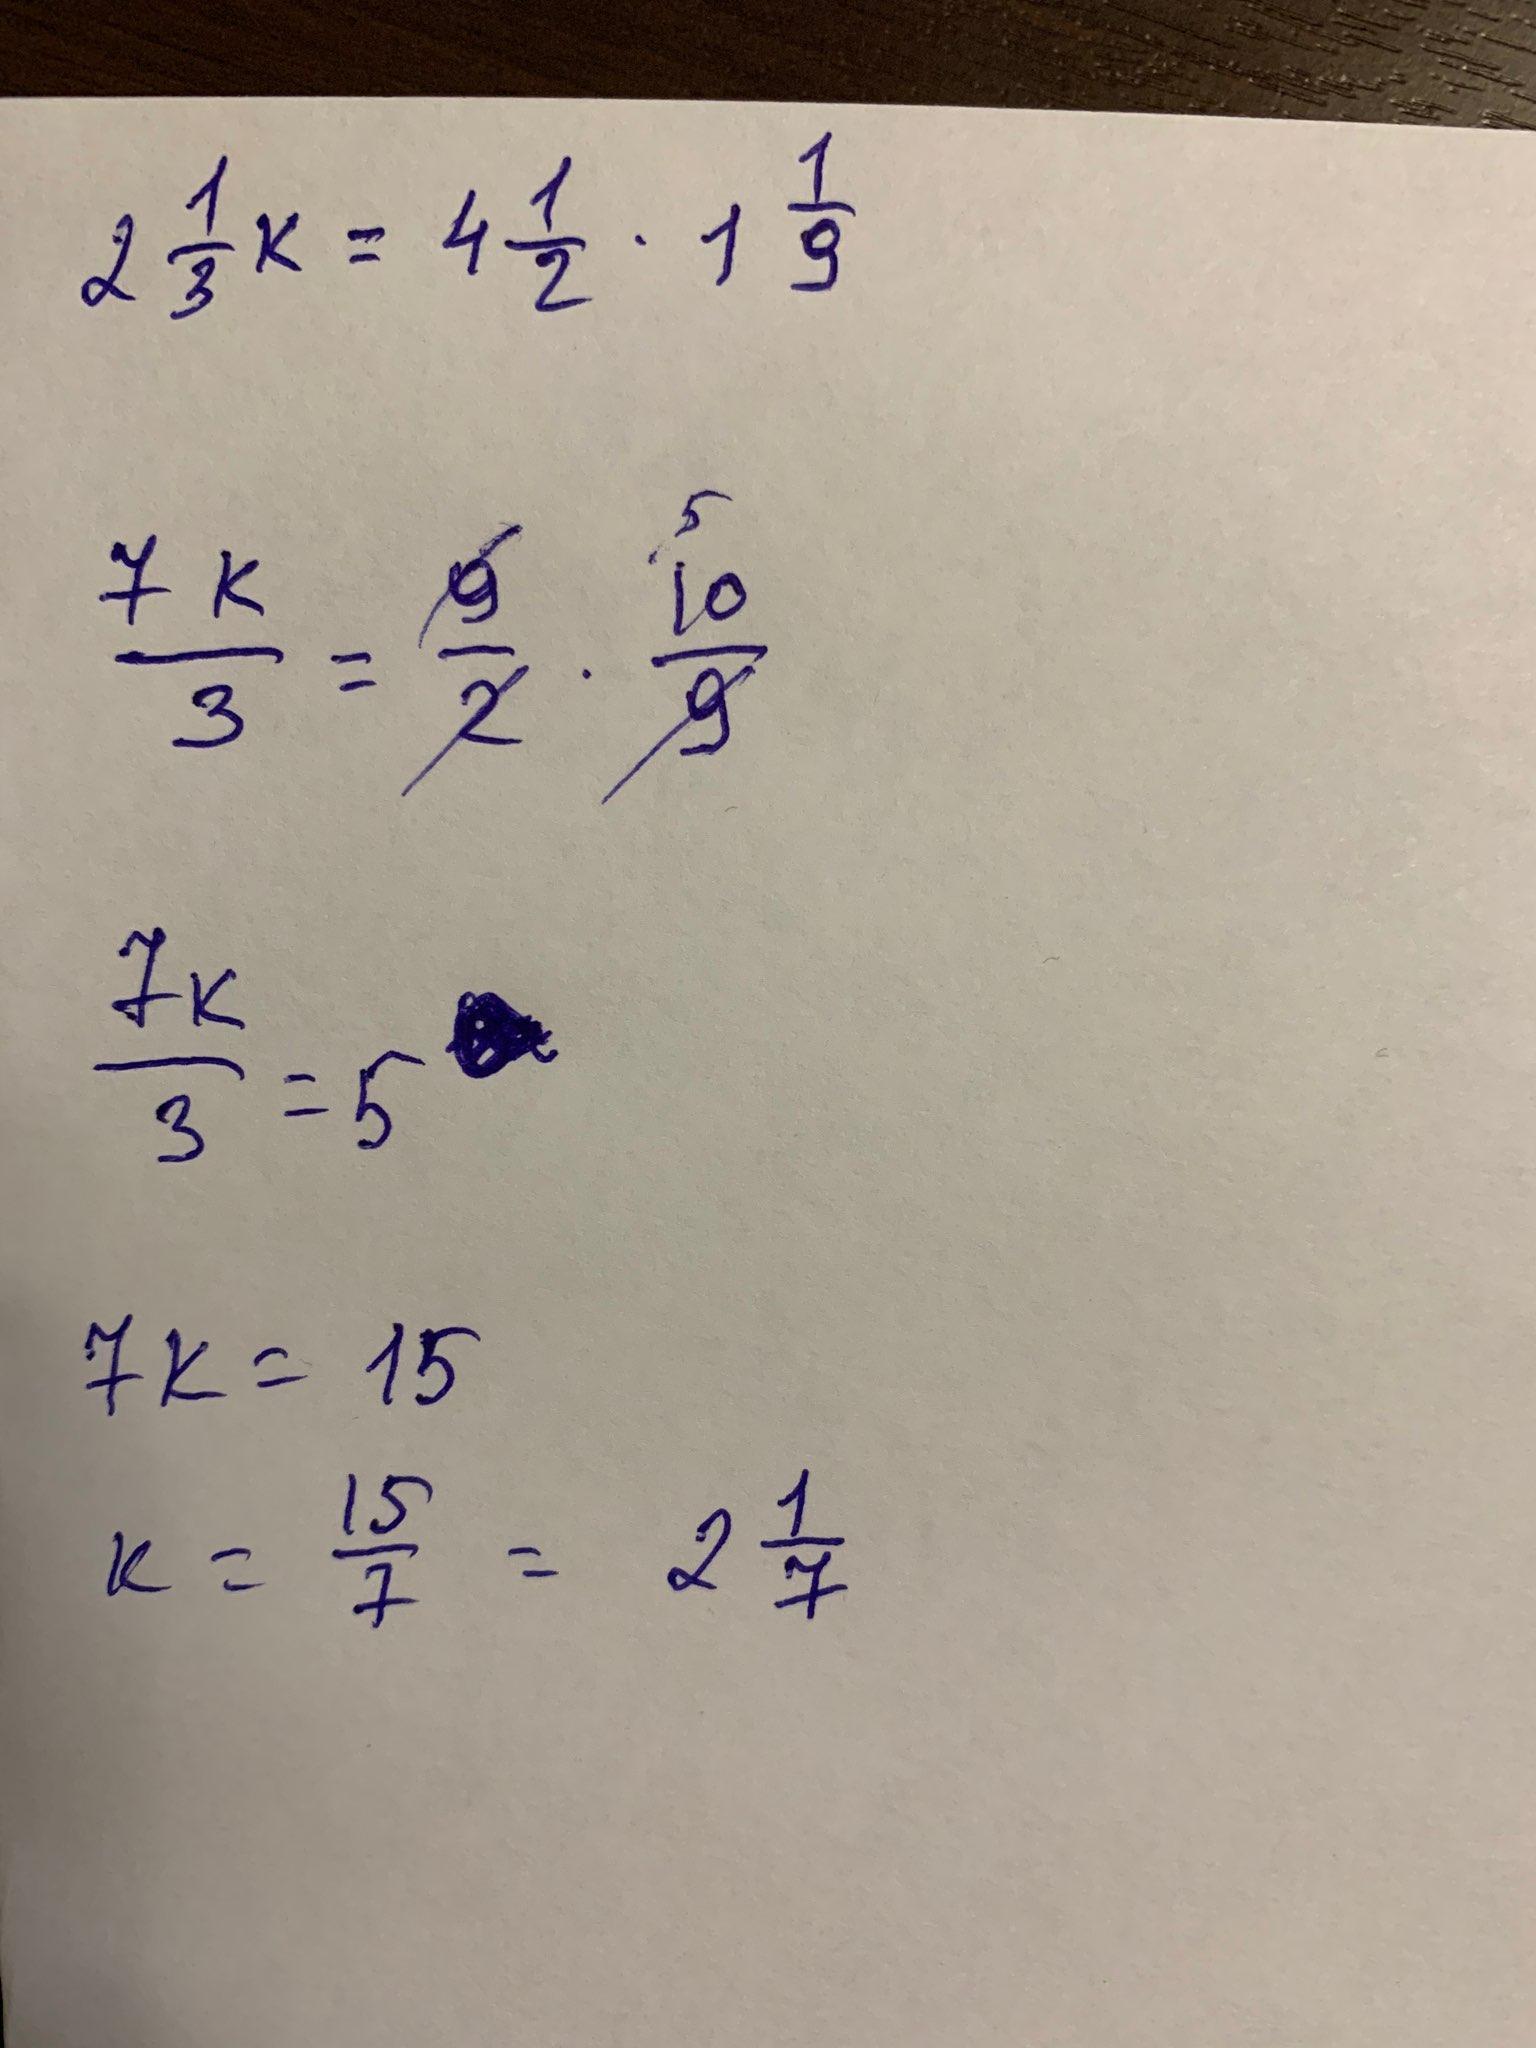 2 1/3 k = 4 1/2 · 1 1/9
7k/3 = 9/2 · 10/9 5
7k/3 = 5
7k = 15
k = 15/7 = 2 1/7